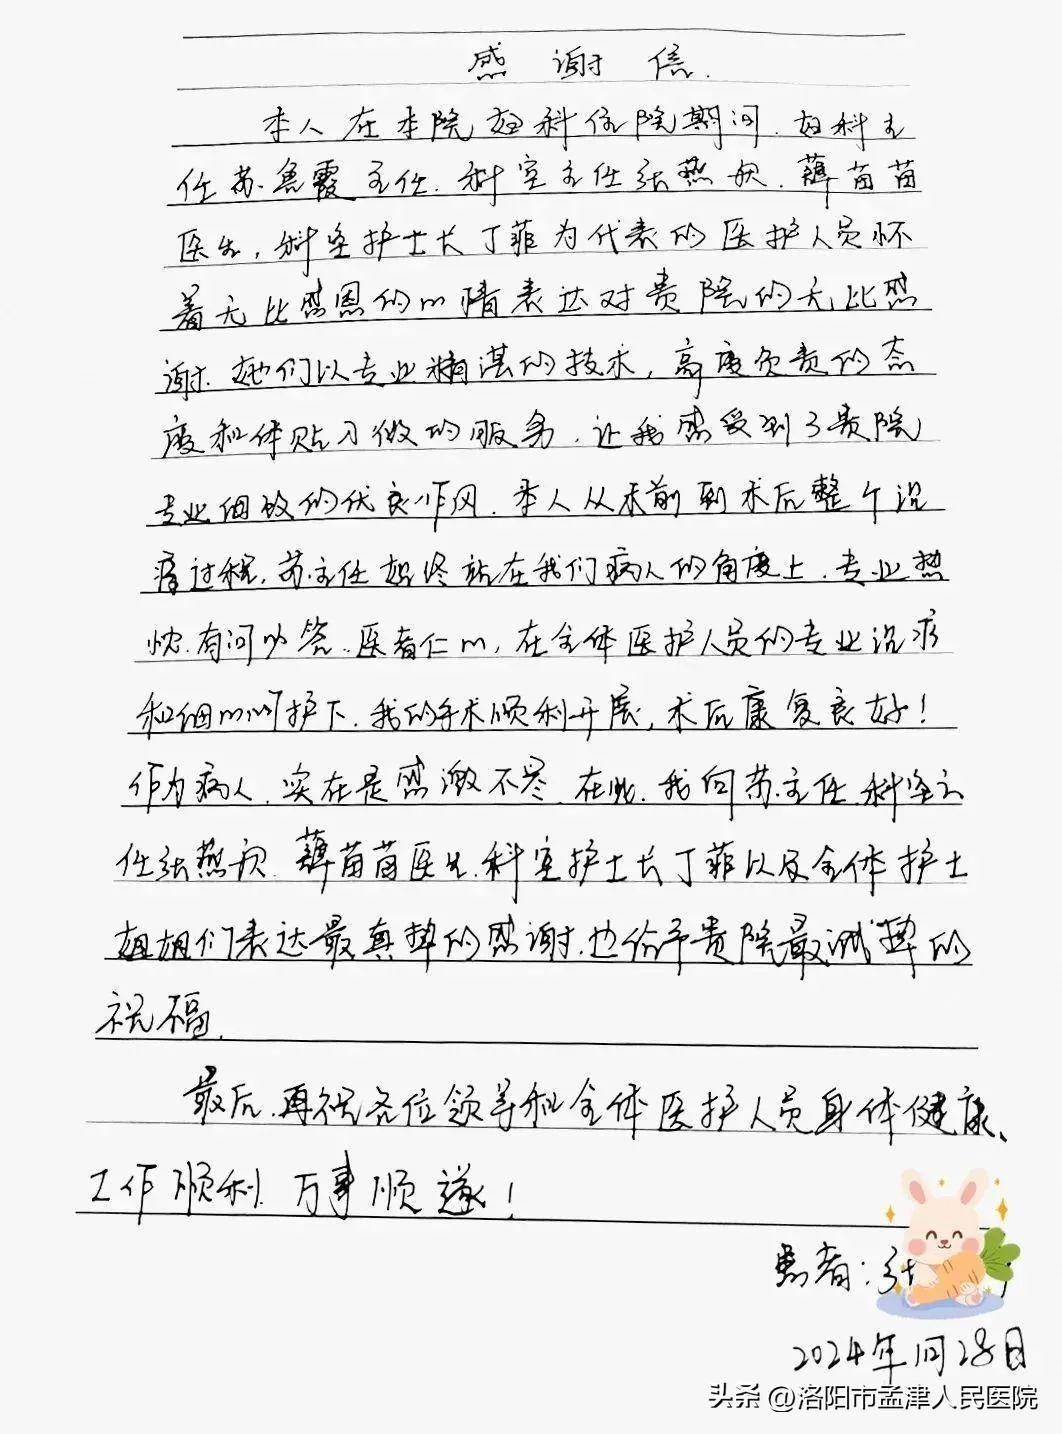 感谢信.
本人在本院妇科住院期间.妇科主
任苏急霞主任.科室主任张燕欣.薛苗苗
医生,科室护士长丁菲为代表的医护人员怀
着无比感恩的心情表达对贵院的无比感
谢.她们以专业精湛的技术,高度负责的态
度和体贴入微的服务.让我感受到了贵院
专业细致的优良作风.本人从术前到术后整个治
疗过程.苏主任始终站在我们病人的角度上.专业热
忱.有问必答.医者仁心,在全体医护人员的专业治疗
和细心呵护下.我的手术顺利开展,术后康复良好!
作为病人.实在是感激不尽.在此.我向苏主任.科室主
任张燕欣.薛苗苗医生.科室护士长丁菲以及全体护士
姐姐们表达最真挚的感谢.也给予贵院最诚挚的
祝福.
最后.再祝各位领导和全体医护人员身体健康、
工作顺利.万事顺遂!
患者:张
2024年1月28日
头条@洛阳市孟津人民医院